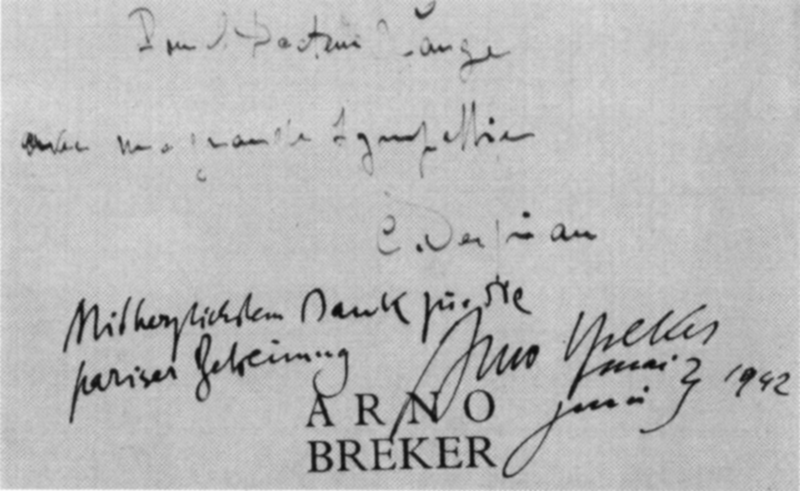 Pour le Docteur Lange
avec ma grande sympathie
C. Despiau
Mit herzlichstem Dank für die
pariser Betreuung
Arno Breker
mai
juni } 1942
ARNO
BREKER